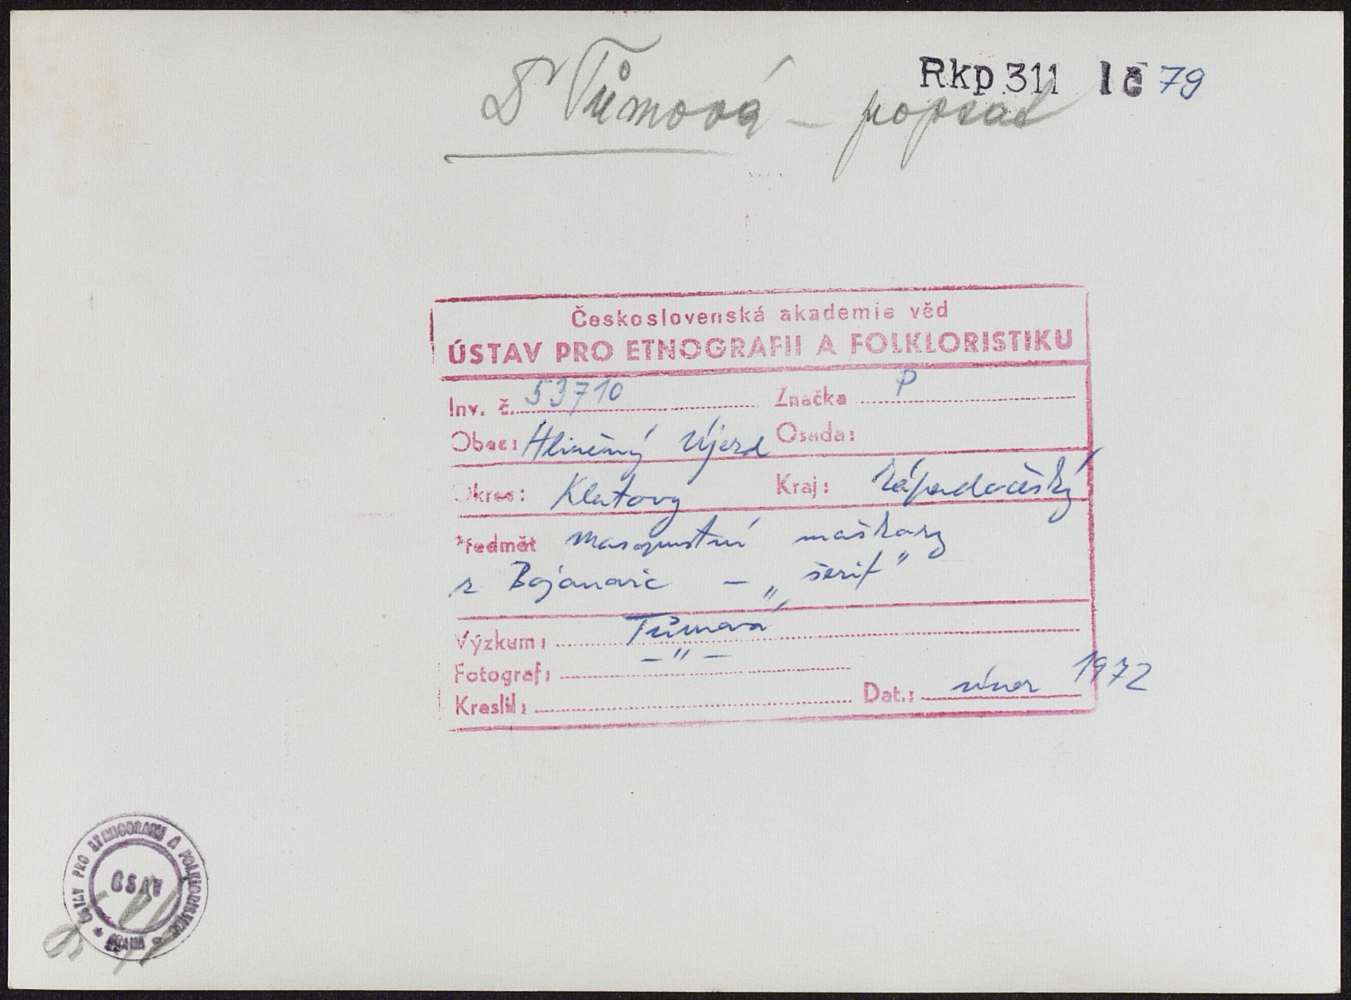 Rkp 311 IČ 79
Dr Tůmová – popsat
Československá akademie věd
ÚSTAV PRO ETNOGRAFII A FOLKLORISTIKU
Inv. č. 53710 Značka P
Obec: Hliněný Újezd Osada:
Okres: Klatovy Kraj: Západočeský
Předmět masopustní maškary
z Bojanovic – „šerif"
Výzkum: Tůmová
Fotograf: –"–
Kreslil: Dat.: únor 1972
ÚSTAV PRO ETNOGRAFII A FOLKLORISTIKU
ČSAV
PRAHA